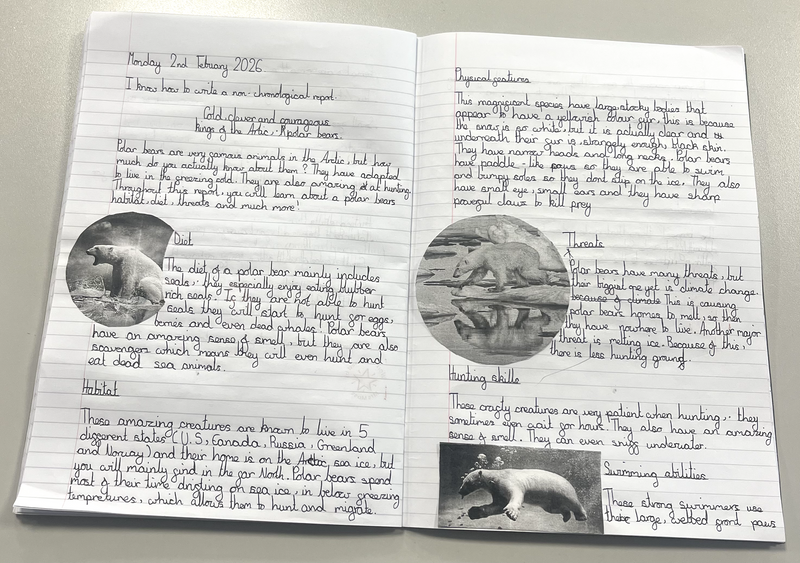 Monday 2nd February 2026.
I know how to write a non-chronological report.
Cold, clever and courageous
kings of the Arctic: Polar bears.
Polar bears are very famous animals in the Arctic, but how
much do you actually know about them? They have adapted
to live in the freezing cold. They are also amazing at hunting.
Throughout this report, you will learn about a polar bears
habitat, diet, threats and much more!
Diet
The diet of a polar bear mainly includes
seals: they especially enjoy eating blubber
rich seals. If they are not able to hunt
seals they will start to hunt for eggs,
and even dead whales! Polar bears
have an amazing sense of smell, but they are also
scavengers which means they will even hunt and
eat dead sea animals.
Habitat
These amazing creatures are known to live in 5
different states (U.S, Canada, Russia, Greenland
and Norway) and their home is on the Arctic sea ice, but
you will mainly find in the far North. Polar bears spend
most of their time drifting on sea ice, in below freezing
tempretures, which allows them to hunt and migrate.
Physical features
This magnificent species have large, stocky bodies that
appear to have a yellowish colour fur, this is because
the snow is so white, but it is actually clear and
underneath their fur is strangely enough, black skin.
They have narrow heads and long necks. Polar bears
have paddle-like paws so they are able to swim
and bumpy soles so they dont slip on the ice. They also
have small eye, small ears and they have sharp
powerful claws to kill prey
Threats
Polar bears have many threats, but
ther biggest one yet is climate change.
because of climate This is causing
polar bears homes to melt, so then
they have nowhere to live. Another major
threat is melting ice. Because of this,
there is less hunting ground.
Hunting skills
These crafty creatures are very patient when hunting: they
sometimes even wait for hours. They also have an amazing
sense of smell. They can even sniff underwater.
Swimming abilities
These strong swimmers use
large, webbed front paws